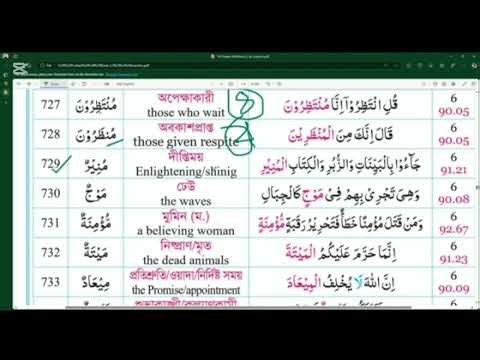 727 مُنْتَظِرُوْنَ অপেক্ষাকারী those who wait قُلِ انْتَظِرُوْٓا اِنَّا مُنْتَظِرُوْنَ 6 90.05
728 مُنْظَرُوْنَ অবকাশপ্রাপ্ত those given respite قَالَ اِنَّكَ مِنَ الْمُنْظَرِيْنَ 6 90.05
729 مُنِيْرٌ দীপ্তিময় Enlightening/shinig جَآءُوْا بِالْبَيِّنَاتِ وَالزُّبُرِ وَالْكِتَابِ الْمُنِيْرِ 6 91.21
730 مَوْجٌ ঢেউ the waves وَهِىَ تَجْرِىْ بِهِمْ فِىْ مَوْجٍ كَالْجِبَالِ 6 90.08
731 مُؤْمِنَةٌ মুমিন (ম.) a believing woman وَمَنْ قَتَلَ مُؤْمِنًا خَطَأً فَتَحْرِيْرُ رَقَبَةٍ مُّؤْمِنَةٍ 6 92.67
732 مَيْتَةٌ নিষ্প্রাণ/মৃত the dead animals اِنَّمَا حَرَّمَ عَلَيْكُمُ الْمَيْتَةَ 6 91.23
733 مِيْعَادٌ প্রতিশ্রুতি/ওয়াদা/নির্দিষ্ট সময় the Promise/appointment اِنَّ اللّٰهَ لَا يُخْلِفُ الْمِيْعَادَ 6 90.09
6